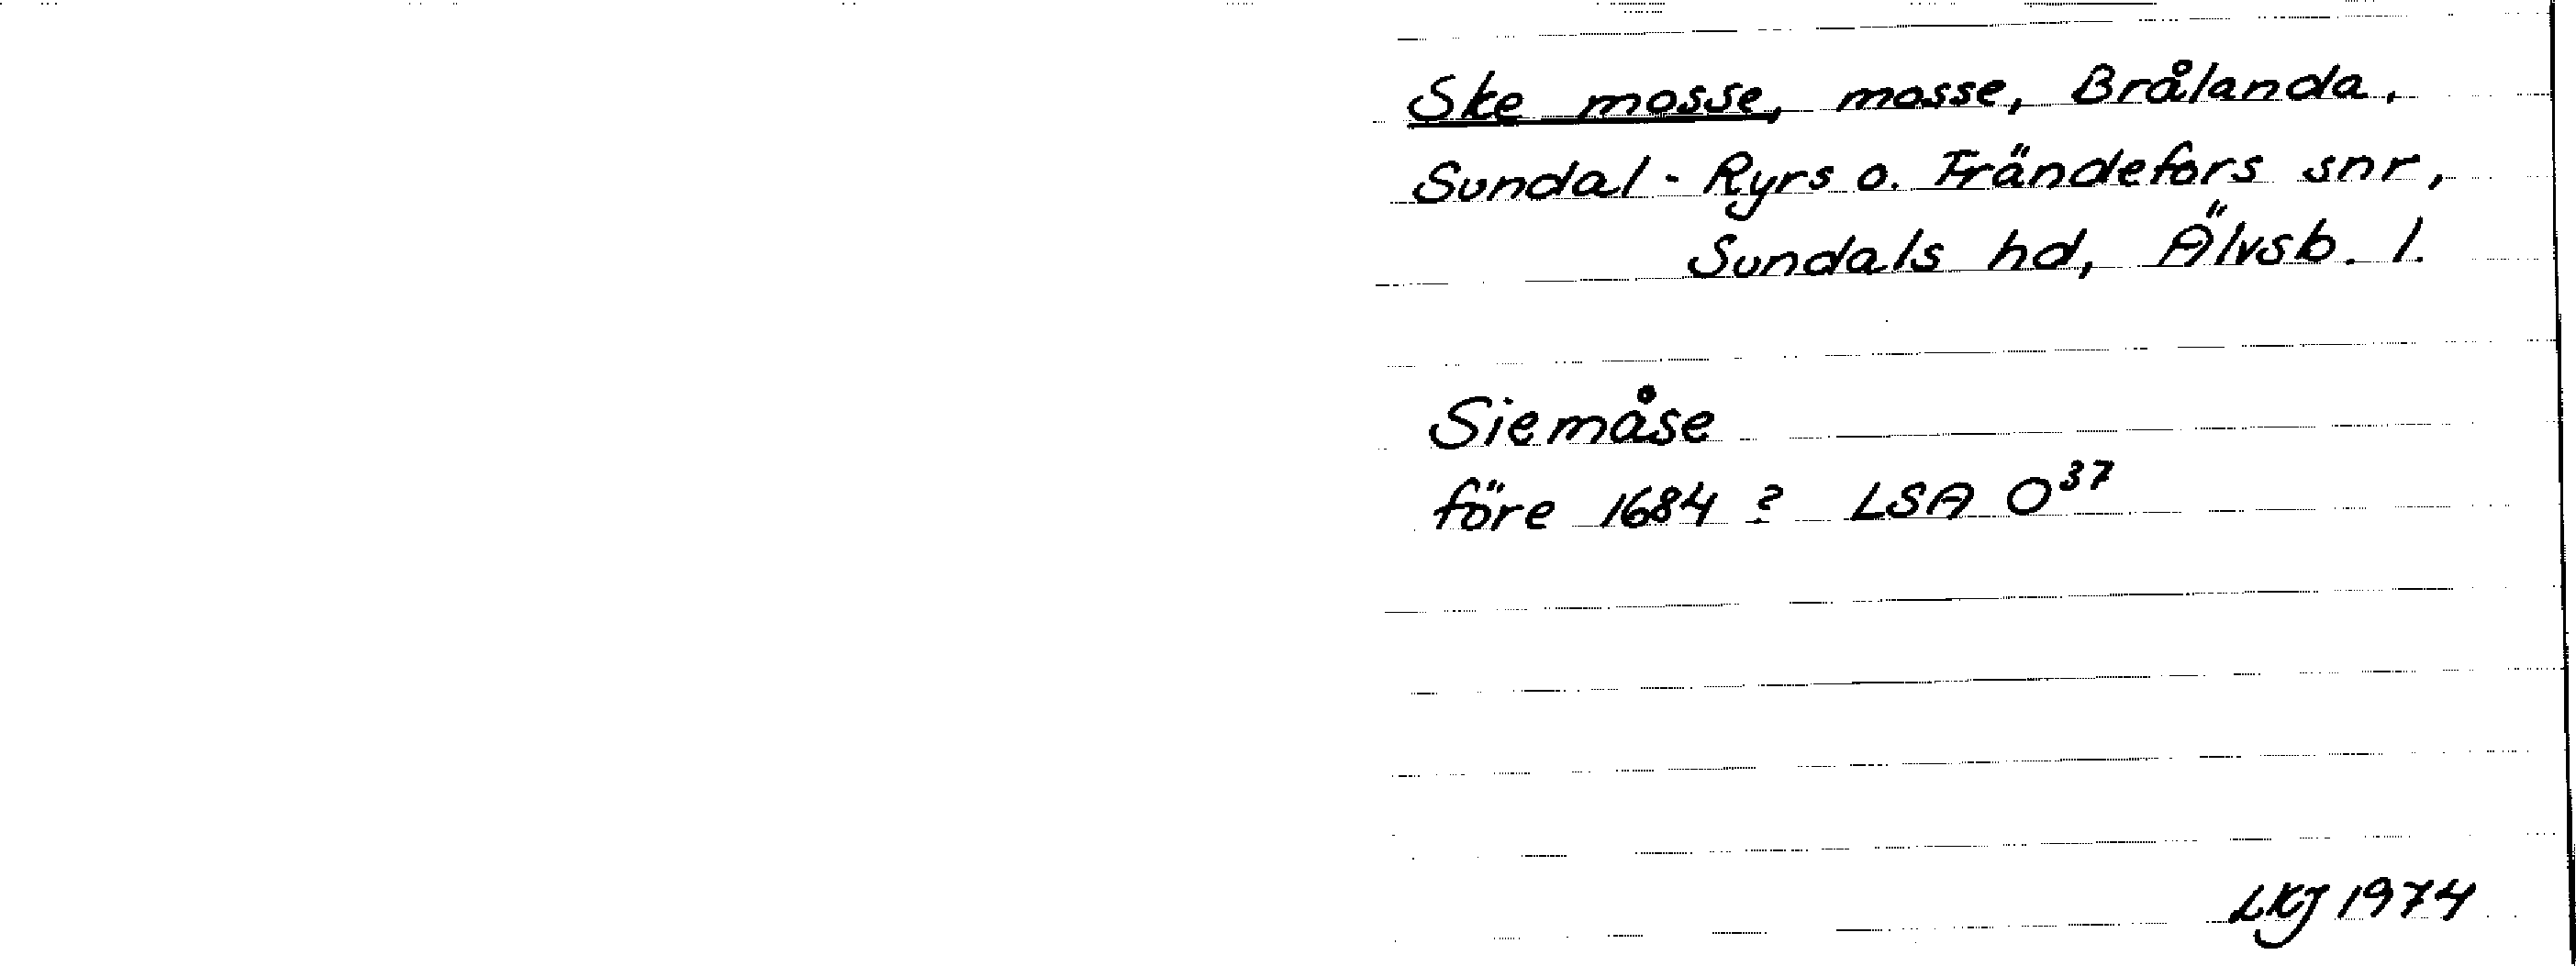 Ske mosse, mosse, Brålanda,
Sundal-Ryrs o. Frändefors snr,
Sundals hd, Älvsb. l.
Siemåse
före 1684 ? LSA O³⁷
LKJ 1974